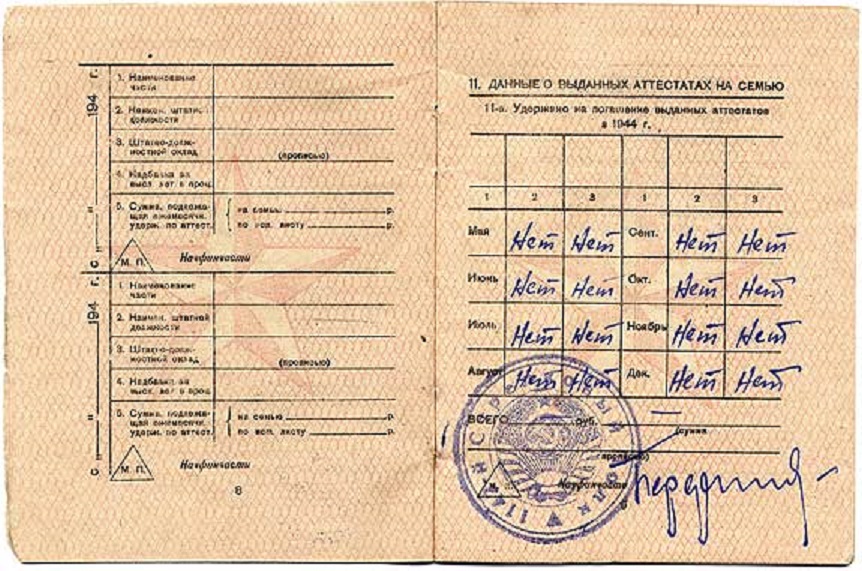 с „ “ 194 г.
1. Наименование части
2. Наимен. штатной должности
3. Штатно-должностной оклад
(прописью)
4. Надбавка за высл. лет в проц.
5. Сумма, подлежащая ежемесячн. удерж. по аттест.
на семью р.
по исп. листу р.
М. П.
Начфинчасти
с „ “ 194 г.
1. Наименование части
2. Наимен. штатной должности
3. Штатно-должностной оклад
(прописью)
4. Надбавка за высл. лет в проц.
5. Сумма, подлежащая ежемесячн. удерж. по аттест.
на семью р.
по исп. листу р.
М. П.
Начфинчасти
8
11. ДАННЫЕ О ВЫДАННЫХ АТТЕСТАТАХ НА СЕМЬЮ
11-а. Удержано на погашение выданных аттестатов
в 1944 г.
1 2 3 1 2 3
Май Нет Нет Сент. Нет Нет
Июнь Нет Нет Окт. Нет Нет
Июль Нет Нет Ноябрь Нет Нет
Август Нет Нет Дек. Нет Нет
ВСЕГО руб. —
(сумма
прописью)
Начфинчасти